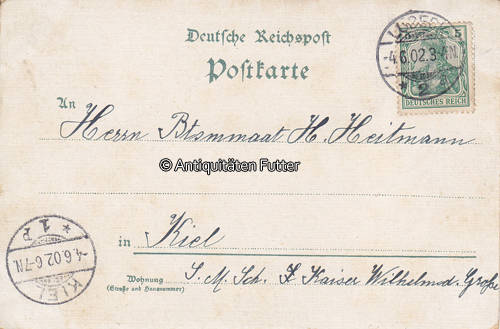 Deutsche Reichspost
Postkarte
5
-4.6.02.3-4N.
* 2
DEUTSCHES REICH
An
Herrn Btsmmaat H. Heitmann
© Antiquitäten Futter
in Kiel
Wohnung
(Straße und Hausnummer)
S. M. Sch. F Kaiser Wilhelm d. Große
KIEL
4.6.02.6-7N.
* 1 P